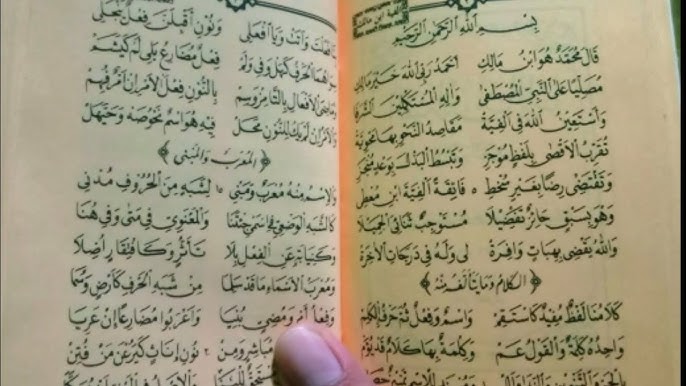 ألفية ابن مالك
بِسْمِ اللهِ الرَّحْمٰنِ الرَّحِيْمِ
قَالَ مُحَمَّدٌ هُوَ ابْنُ مَالِكِ أَحْمَدُ رَبِّي اللهَ خَيْرَ مَالِكِ
مُصَلِّيًا عَلَى النَّبِيِّ الْمُصْطَفَى وَآلِهِ الْمُسْتَكْمِلِيْنَ الشَّرَفَا
وَأَسْتَعِيْنُ اللهَ فِي أَلْفِيَّةْ مَقَاصِدُ النَّحْوِ بِهَا مَحْوِيَّةْ
تُقَرِّبُ الْأَقْصَى بِلَفْظٍ مُوْجَزِ وَتَبْسُطُ الْبَذْلَ بِوَعْدٍ مُنْجَزِ
وَتَقْتَضِي رِضًا بِغَيْرِ سُخْطِ ٥ فَائِقَةً أَلْفِيَّةَ ابْنِ مُعْطِي
وَهْوَ بِسَبْقٍ حَائِزٌ تَفْضِيْلَا مُسْتَوْجِبٌ ثَنَائِيَ الْجَمِيْلَا
وَاللهُ يَقْضِي بِهِبَاتٍ وَافِرَةْ لِي وَلَهُ فِي دَرَجَاتِ الْآخِرَةْ
﴿ الْكَلَامُ وَمَا يَتَأَلَّفُ مِنْهُ ﴾
كَلَامُنَا لَفْظٌ مُفِيْدٌ كَاسْتَقِمْ وَاسْمٌ وَفِعْلٌ ثُمَّ حَرْفٌ الْكَلِمْ
وَاحِدُهُ كَلِمَةٌ وَالْقَوْلُ عَمّ وَكِلْمَةٌ بِهَا كَلَامٌ قَدْ يُؤَمّ
وَالتَّنْوِيْنِ وَالنِّدَا وَأَلْ وَمُسْنَدٍ لِلْاِسْمِ
بِتَا فَعَلْتَ وَأَتَتْ وَيَا افْعَلِي وَنُوْنِ أَقْبِلَنَّ فِعْلٌ يَنْجَلِي
سِوَاهُمَا الْحَرْفُ كَهَلْ وَفِي وَلَمْ فِعْلٌ مُضَارِعٌ يَلِي لَمْ كَيَشَمّ
وَمَاضِيَ الْأَفْعَالِ بِالتَّا مِزْ وَسِمْ بِالنُّوْنِ فِعْلَ الْأَمْرِ إِنْ أَمْرٌ فُهِمْ
وَالْأَمْرُ إِنْ لَمْ يَكُ لِلنُّوْنِ مَحَلّ فِيْهِ هُوَ اسْمٌ نَحْوُ صَهْ وَحَيَّهَلْ
﴿ الْمُعْرَبُ وَالْمَبْنِي ﴾
وَالْاِسْمُ مِنْهُ مُعْرَبٌ وَمَبْنِي ١٥ لِشَبَهٍ مِنَ الْحُرُوْفِ مُدْنِي
كَالشَّبَهِ الْوَضْعِيِّ فِي اسْمَيْ جِئْتَنَا وَالْمَعْنَوِيِّ فِي مَتَى وَفِي هُنَا
وَكَنِيَابَةٍ عَنِ الْفِعْلِ بِلَا تَأَثُّرٍ وَكَافْتِقَارٍ أُصِّلَا
وَمُعْرَبُ الْأَسْمَاءِ مَا قَدْ سَلِمَا مِنْ شَبَهِ الْحَرْفِ كَأَرْضٍ وَسُمَا
وَفِعْلُ أَمْرٍ وَمُضِيٍّ بُنِيَا وَأَعْرَبُوْا مُضَارِعًا إِنْ عَرِيَا
مُبَاشِرٍ وَمِنْ ٢٠ نُوْنِ إِنَاثٍ كَيَرُعْنَ مَنْ فُتِنْ
مُسْتَحِقٌّ لِلْبِنَا